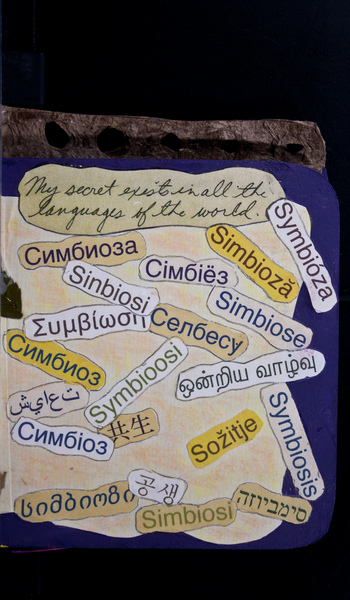 My secret exists in all the
languages of the world.
Symbióza
Симбиоза
Simbioză
Sinbiosi
Сімбіёз
Simbiose
Συμβίωση
Селбесу
Симбиоз
Symbioosi
ஒன்றிய வாழ்வு
تعايش
Симбіоз
共生
Sožitje
Symbiosis
სიმბიოზი
공생
Simbiosi
סימביוזה